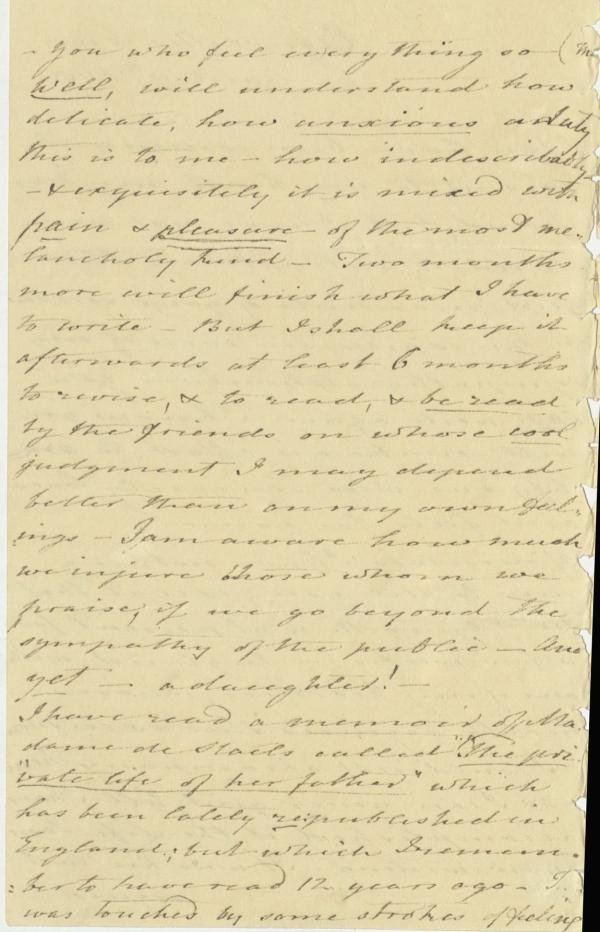 - You who feel every thing so
well, will understand how
delicate, how anxious a duty
this is to me - how indescribably
- & exquisitely it is mixed with
pain & pleasure - of the most me-
lancholy kind - Two months
more will finish what I have
to write - But I shall keep it
afterwards at least 6 months
to revise, & to read, & be read
by the friends on whose cool
judgment I may depend
better than on my own feel-
ings - I am aware how much
we injure those whom we
praise, if we go beyond the
sympathy of the public - And
yet - a daughter! -
I have read a memoir of Ma-
dame de Staels called "The pri-
"vate life of her father" which
has been lately republished in
England; but which I remem-
ber to have read 12 years ago - I
was touched by some strokes of feeling